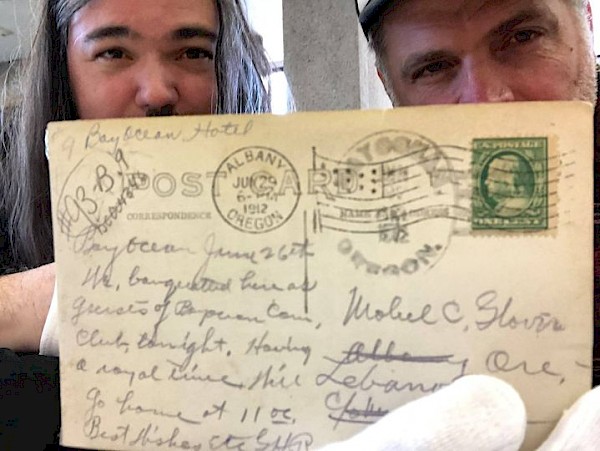 9 BayOcean Hotel
#93-B.9
POST CARD
ALBANY
JUN 29
1912
OREGON
BAYOCEAN
OREGON.
U.S. POSTAGE
ONE CENT
CORRESPONDENCE
Bayocean June 26th
We, banqueted here as
guests of Bayocean Com,
Club, tonight. Having
a royal time, Will
go home at 11 oc,
Best Wishes Etc GHR
Mabel C, Glover
Albany Ore,
Lebanon